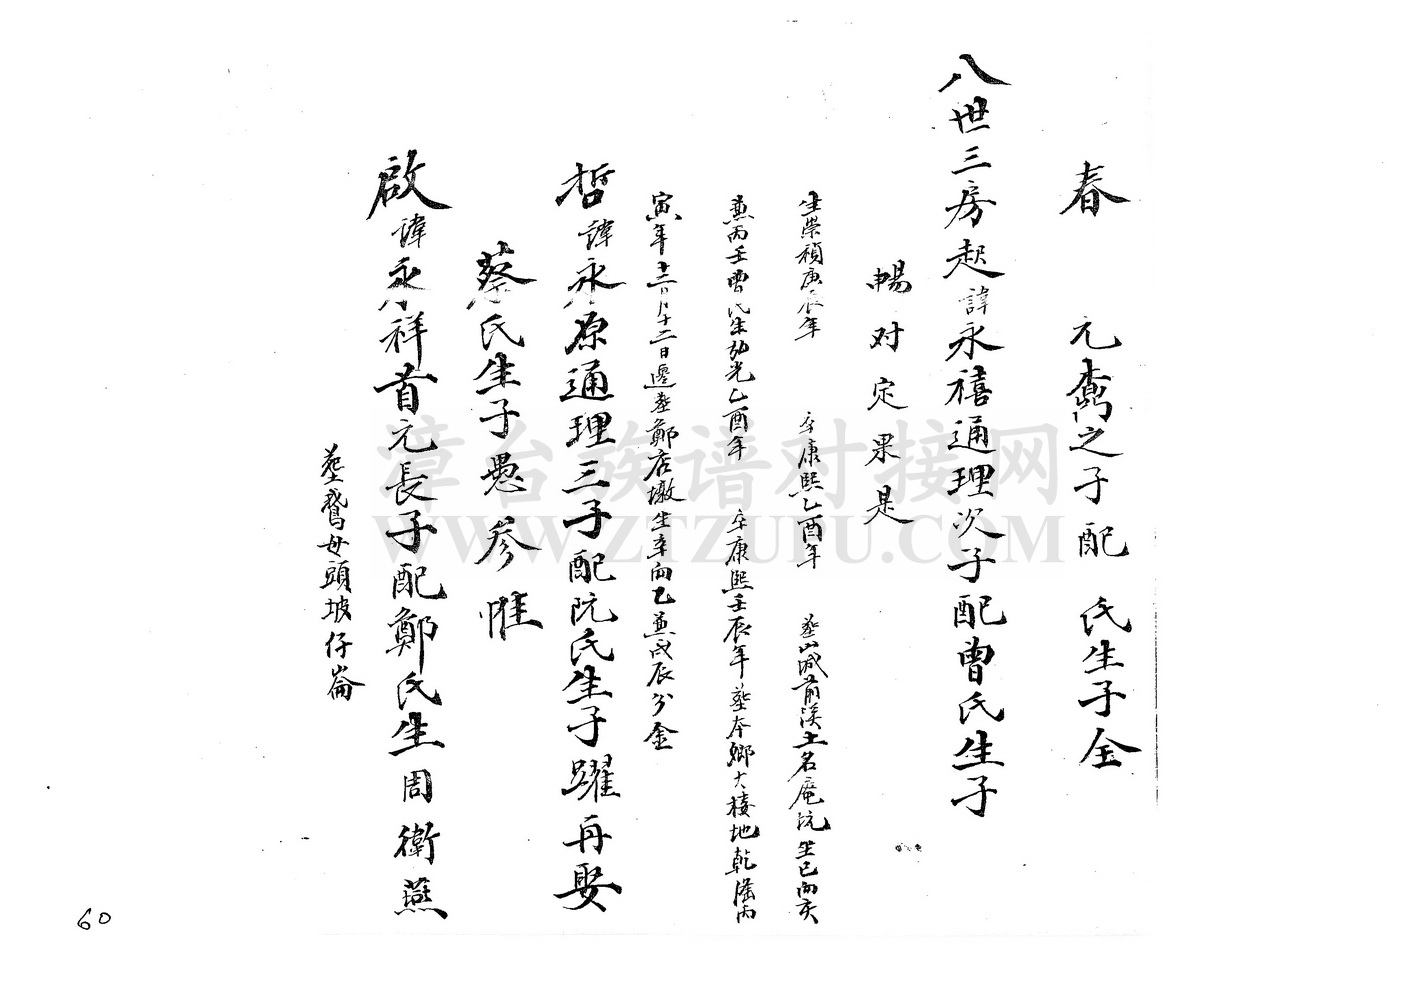 春 元喬之子配 氏生子全
八世三房起諱永禧通理次子配曾氏生子
暢对定果是
生崇禎庚辰年 卒康熙乙酉年 葬城前溪土名庵坑坐巳向亥
兼丙壬曾氏生弘光乙酉年 卒康熙壬辰年葬本鄉大楼地乾隆丙
寅年十二月十二日遷葬鄭店墩坐辛向乙兼戌辰分金
哲諱永原通理三子配阮氏生子躍再娶
蔡氏生子愚参惟
啟諱永祥首元長子配鄭氏生周衛燕
葬鵞母頭坡仔崙
漳台族谱对接网
WWW.ZTZUPU.COM
60